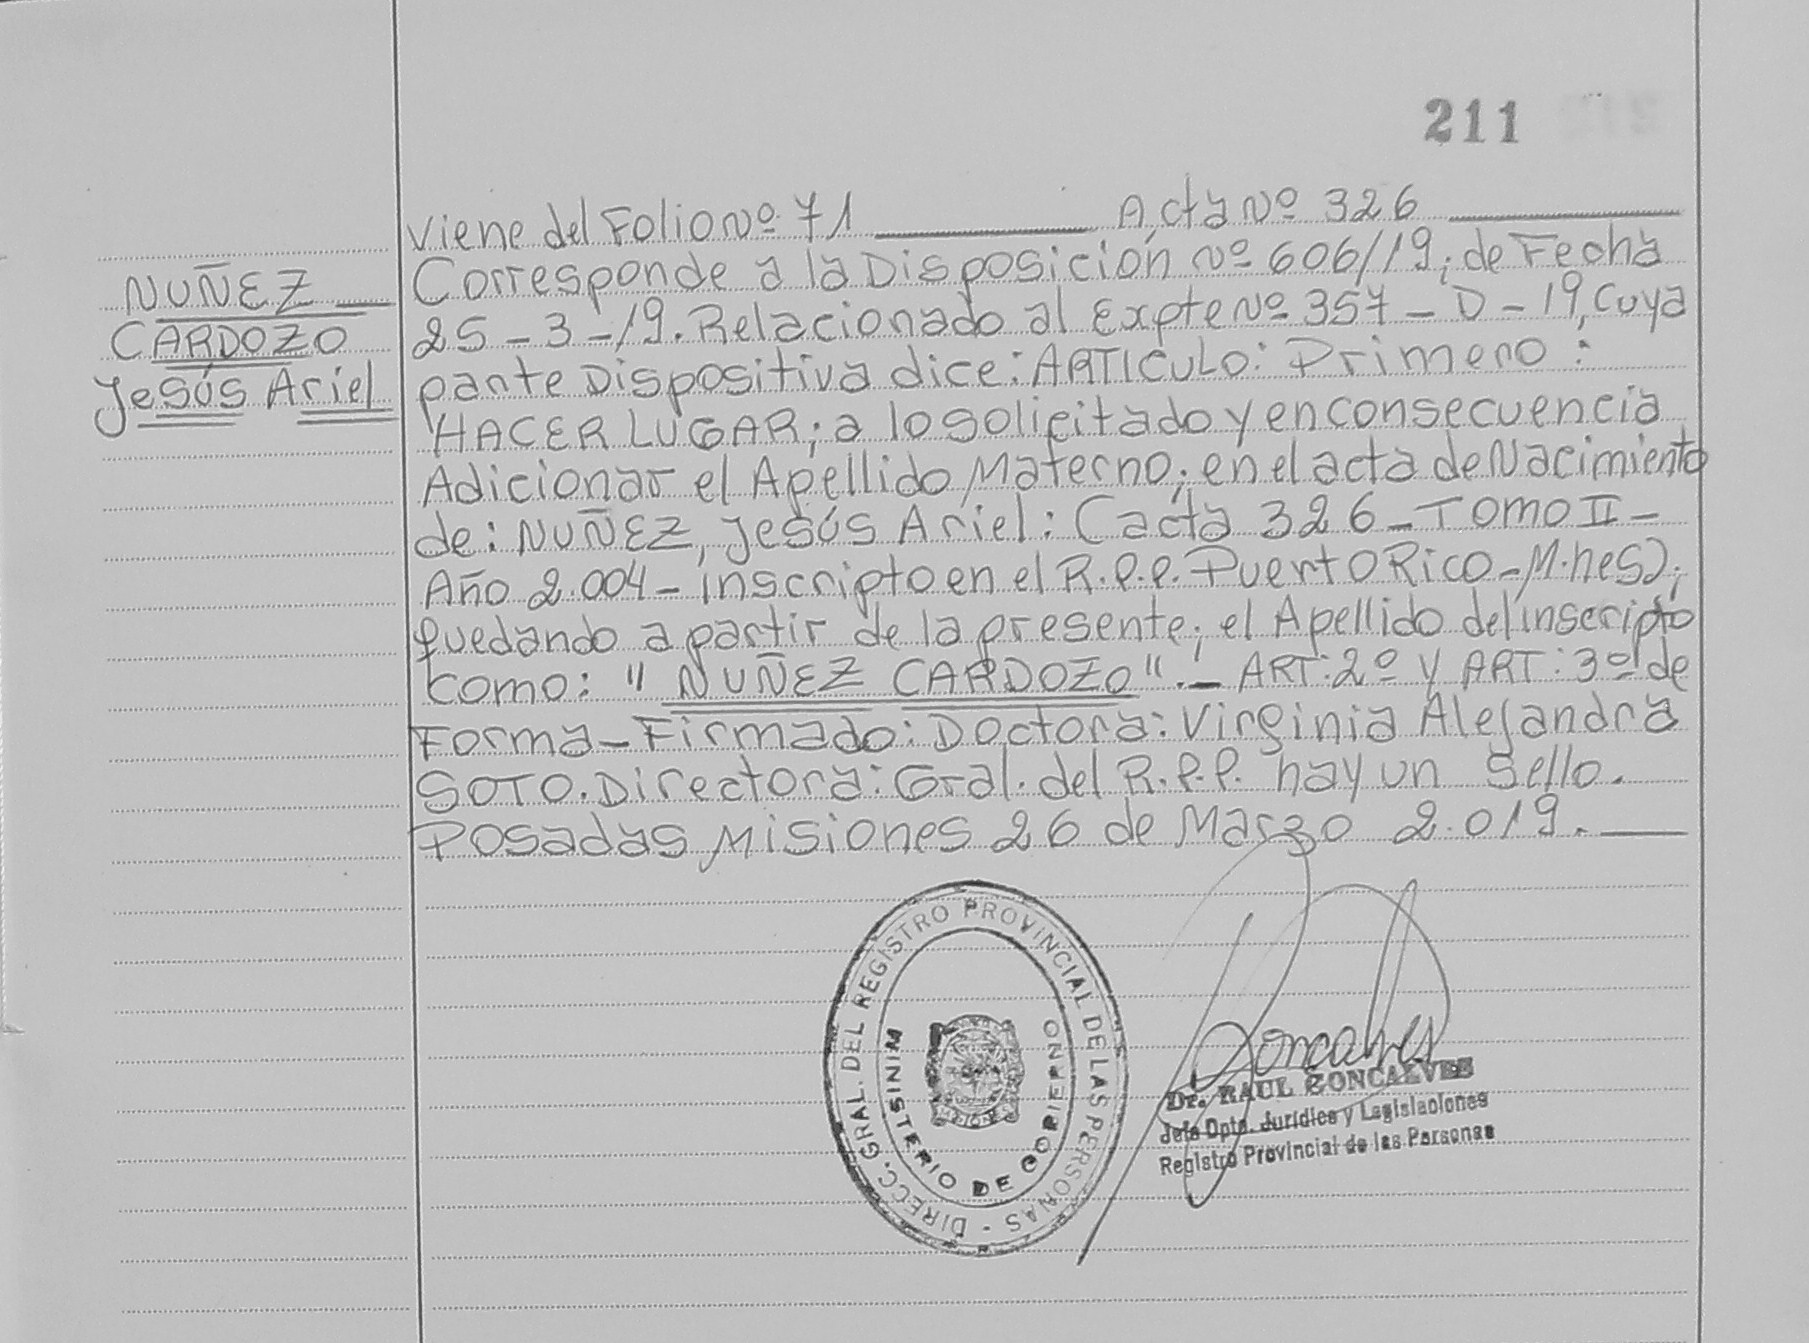 211
Viene del Folio Nº 71 ______ Acta Nº 326 ______
NUÑEZ __
CARDOZO
Jesús Ariel
Corresponde a la Disposición Nº 606//19; de Fecha
25-3-/9. Relacionado al Expte Nº 357-D-19, cuya
parte Dispositiva dice: ARTICULO: Primero:
HACER LUGAR; a lo solicitado y en consecuencia
Adicionar el Apellido Materno; en el acta de Nacimiento
de: NUÑEZ, Jesús Ariel: (acta 326-TOMO II-
Año 2.004- inscripto en el R.P.P. Puerto Rico-M.nes);
quedando a partir de la presente; el Apellido del inscripto
como: "NUÑEZ CARDOZO".- ART:2º y ART:3º de
Forma-Firmado: Doctora: Virginia Alejandra
SOTO. Directora: Gral. del R.P.P. hay un sello.
Posadas Misiones 26 de Marzo 2.019. __
DIRECC. GRAL. DEL REGISTRO PROVINCIAL DE LAS PERSONAS -
MINISTERIO DE GOBIERNO
Goncalves
Dr. RAUL GONCALVES
Jefe Dpto. Jurídico y Legislaciones
Registro Provincial de las Personas